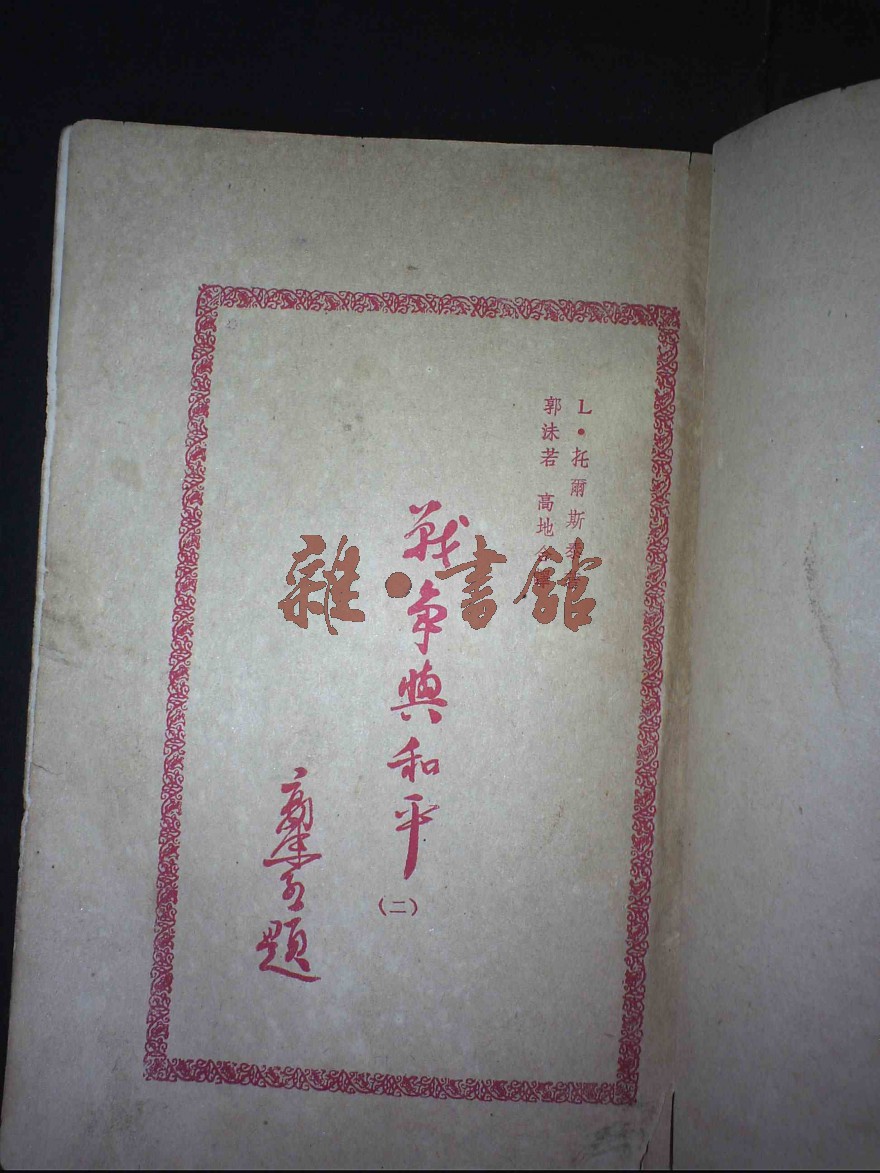 L•托爾斯泰著
郭沫若 高地合譯
戰爭與和平
(二)
郭沫若題
雜•書館